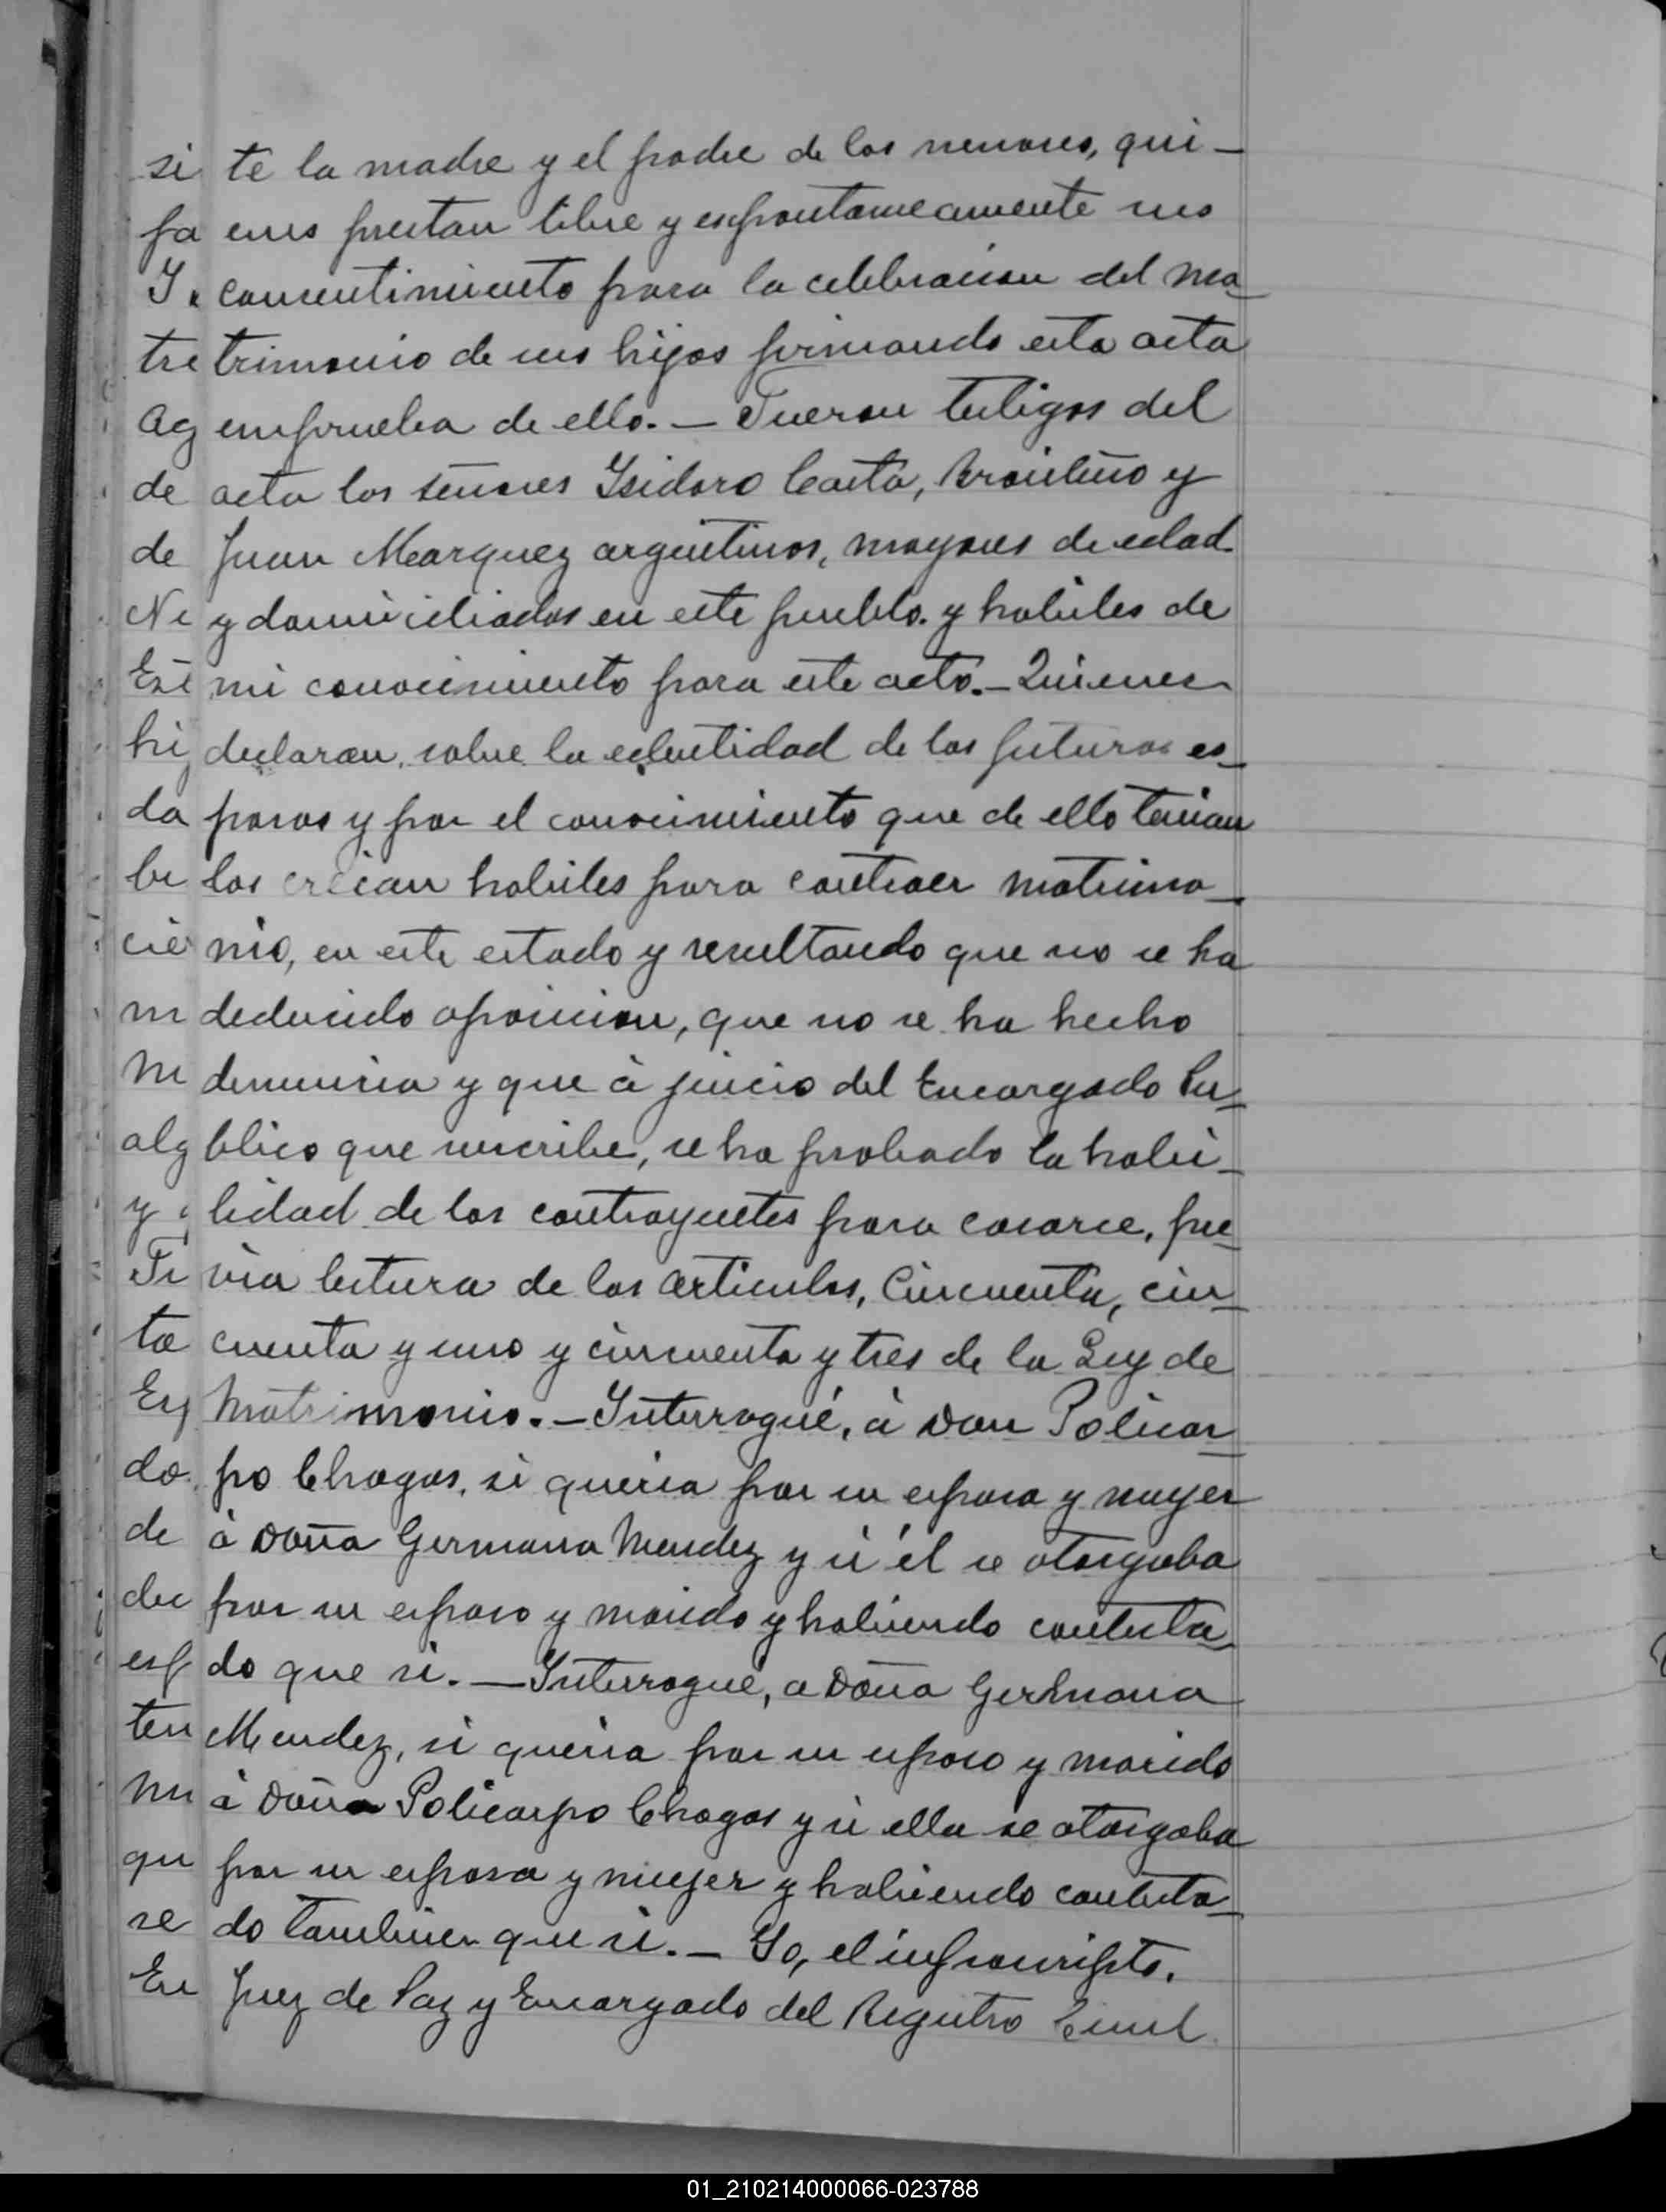 si te la madre y el padre de los menores, qui-
fa enes prestan libre y espontaneamente sus
Y. consentimiento para la celebracion del ma-
tre trimonio de sus hijos firmando esta acta
ag en prueba de ello. - Fueron testigos del
de acta los señores Isidoro Costa, Brasilero y
de Juan Marquez argentinos, mayores de edad
Ne y domiciliados en este pueblo. y habiles de
Ese mi conocimiento para este acto. - Quienes
hi declaran, sobre la edentidad de los futuros es-
da posos y por el conocimiento que de ello tenian
be los creian habiles para contraer matrimo-
cie nio, en este estado y resultando que no se ha
m deducido oposicion, que no se ha hecho
M denuncia y que à juicio del Encargado Pu-
alg blico que suscribe, se ha probado la habi-
y lidad de los contrayentes para casarce, pre-
Te via lectura de los articulos, Cincuenta, cin-
ta cuenta y uno y cincuenta y tres de la Ley de
Ey Matrimonio. - Interrogué, à Don Policar-
do po Chagas, si queria por su esposa y muger
de à Doña Germana Mendez y si él se otorgaba
dec por su esposo y marido y habiendo contesta-
esp do que si. - Interrogué, a Doña Germana
ten Mendez, si queria por su esposo y marido
Mu à Doña Policarpo Chagas y si ella se otorgaba
qu por su esposa y muger y habiendo contesta-
se do tambien que si. - Yo, el infrascripto,
En Juez de Paz y Encargado del Registro Civil
01_210214000066-023788